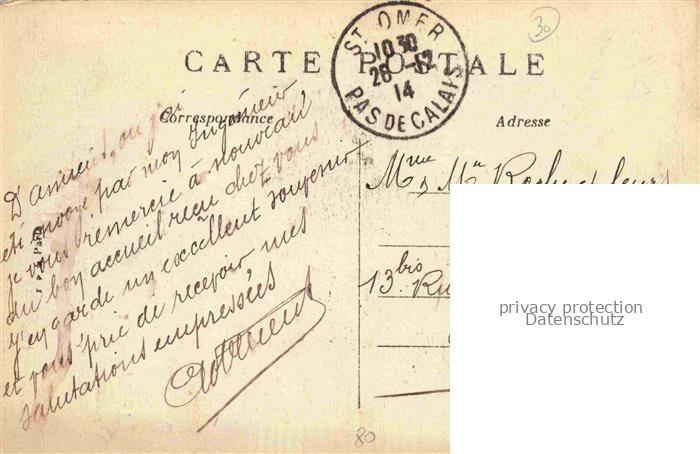 30
CARTE POSTALE
ST OMER
10 30
26 -12
14
PAS DE CALAIS
Correspondance
Adresse
D'amiens, ou j'ai
été envoyé par mon Ingénieur
je vous remercie à nouveau
du bon accueil reçu chez vous
j'en garde un excellent souvenir
et vous prie de recevoir mes
salutations empressées
Mme & Mr
13 bis Ru
Paris
privacy protection
Datenschutz
80